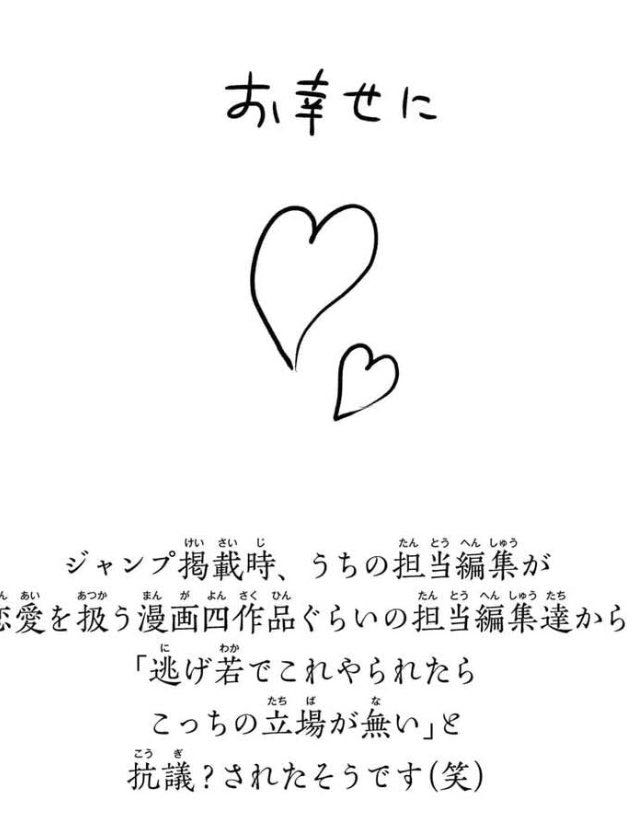 お幸せに
ジャンプ掲載時、うちの担当編集が
恋愛を扱う漫画四作品ぐらいの担当編集達から
「逃げ若でこれやられたら
こっちの立場が無い」と
抗議?されたそうです(笑)